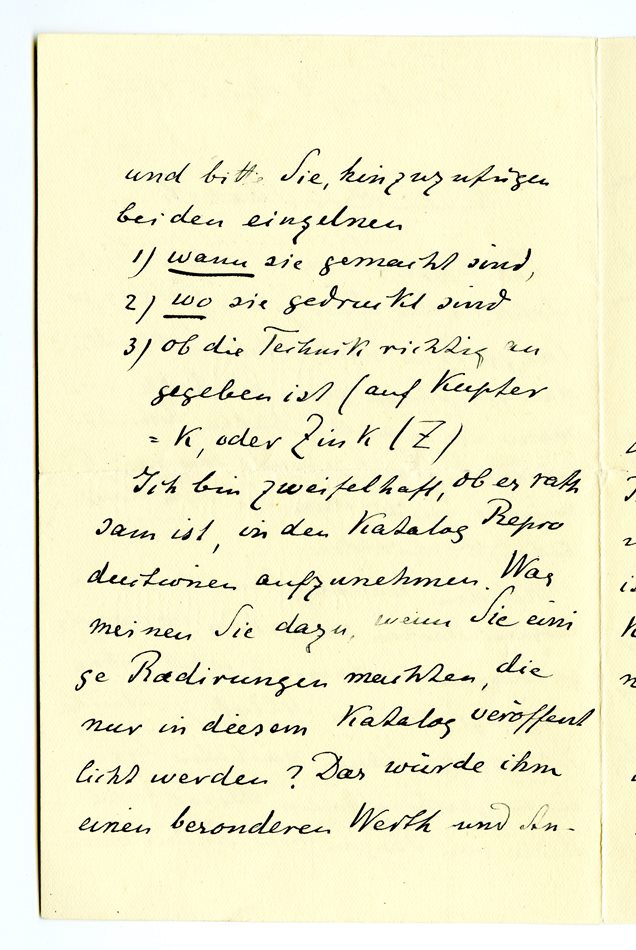 und bitte Sie, hinzuzufügen
bei den einzelnen
1) wann sie gemacht sind,
2) wo sie gedruckt sind
3) ob die Technik richtig an
gegeben ist (auf Kupfer
= K, oder Zink (Z)
Ich bin zweifelhaft, ob es rath
sam ist, in den Katalog Repro
ductionen aufzunehmen. Was
meinen Sie dazu, wenn Sie eini
ge Radirungen machten, die
nur in diesem Katalog veröffent
licht werden? Das würde ihm
einen besonderen Werth und An-